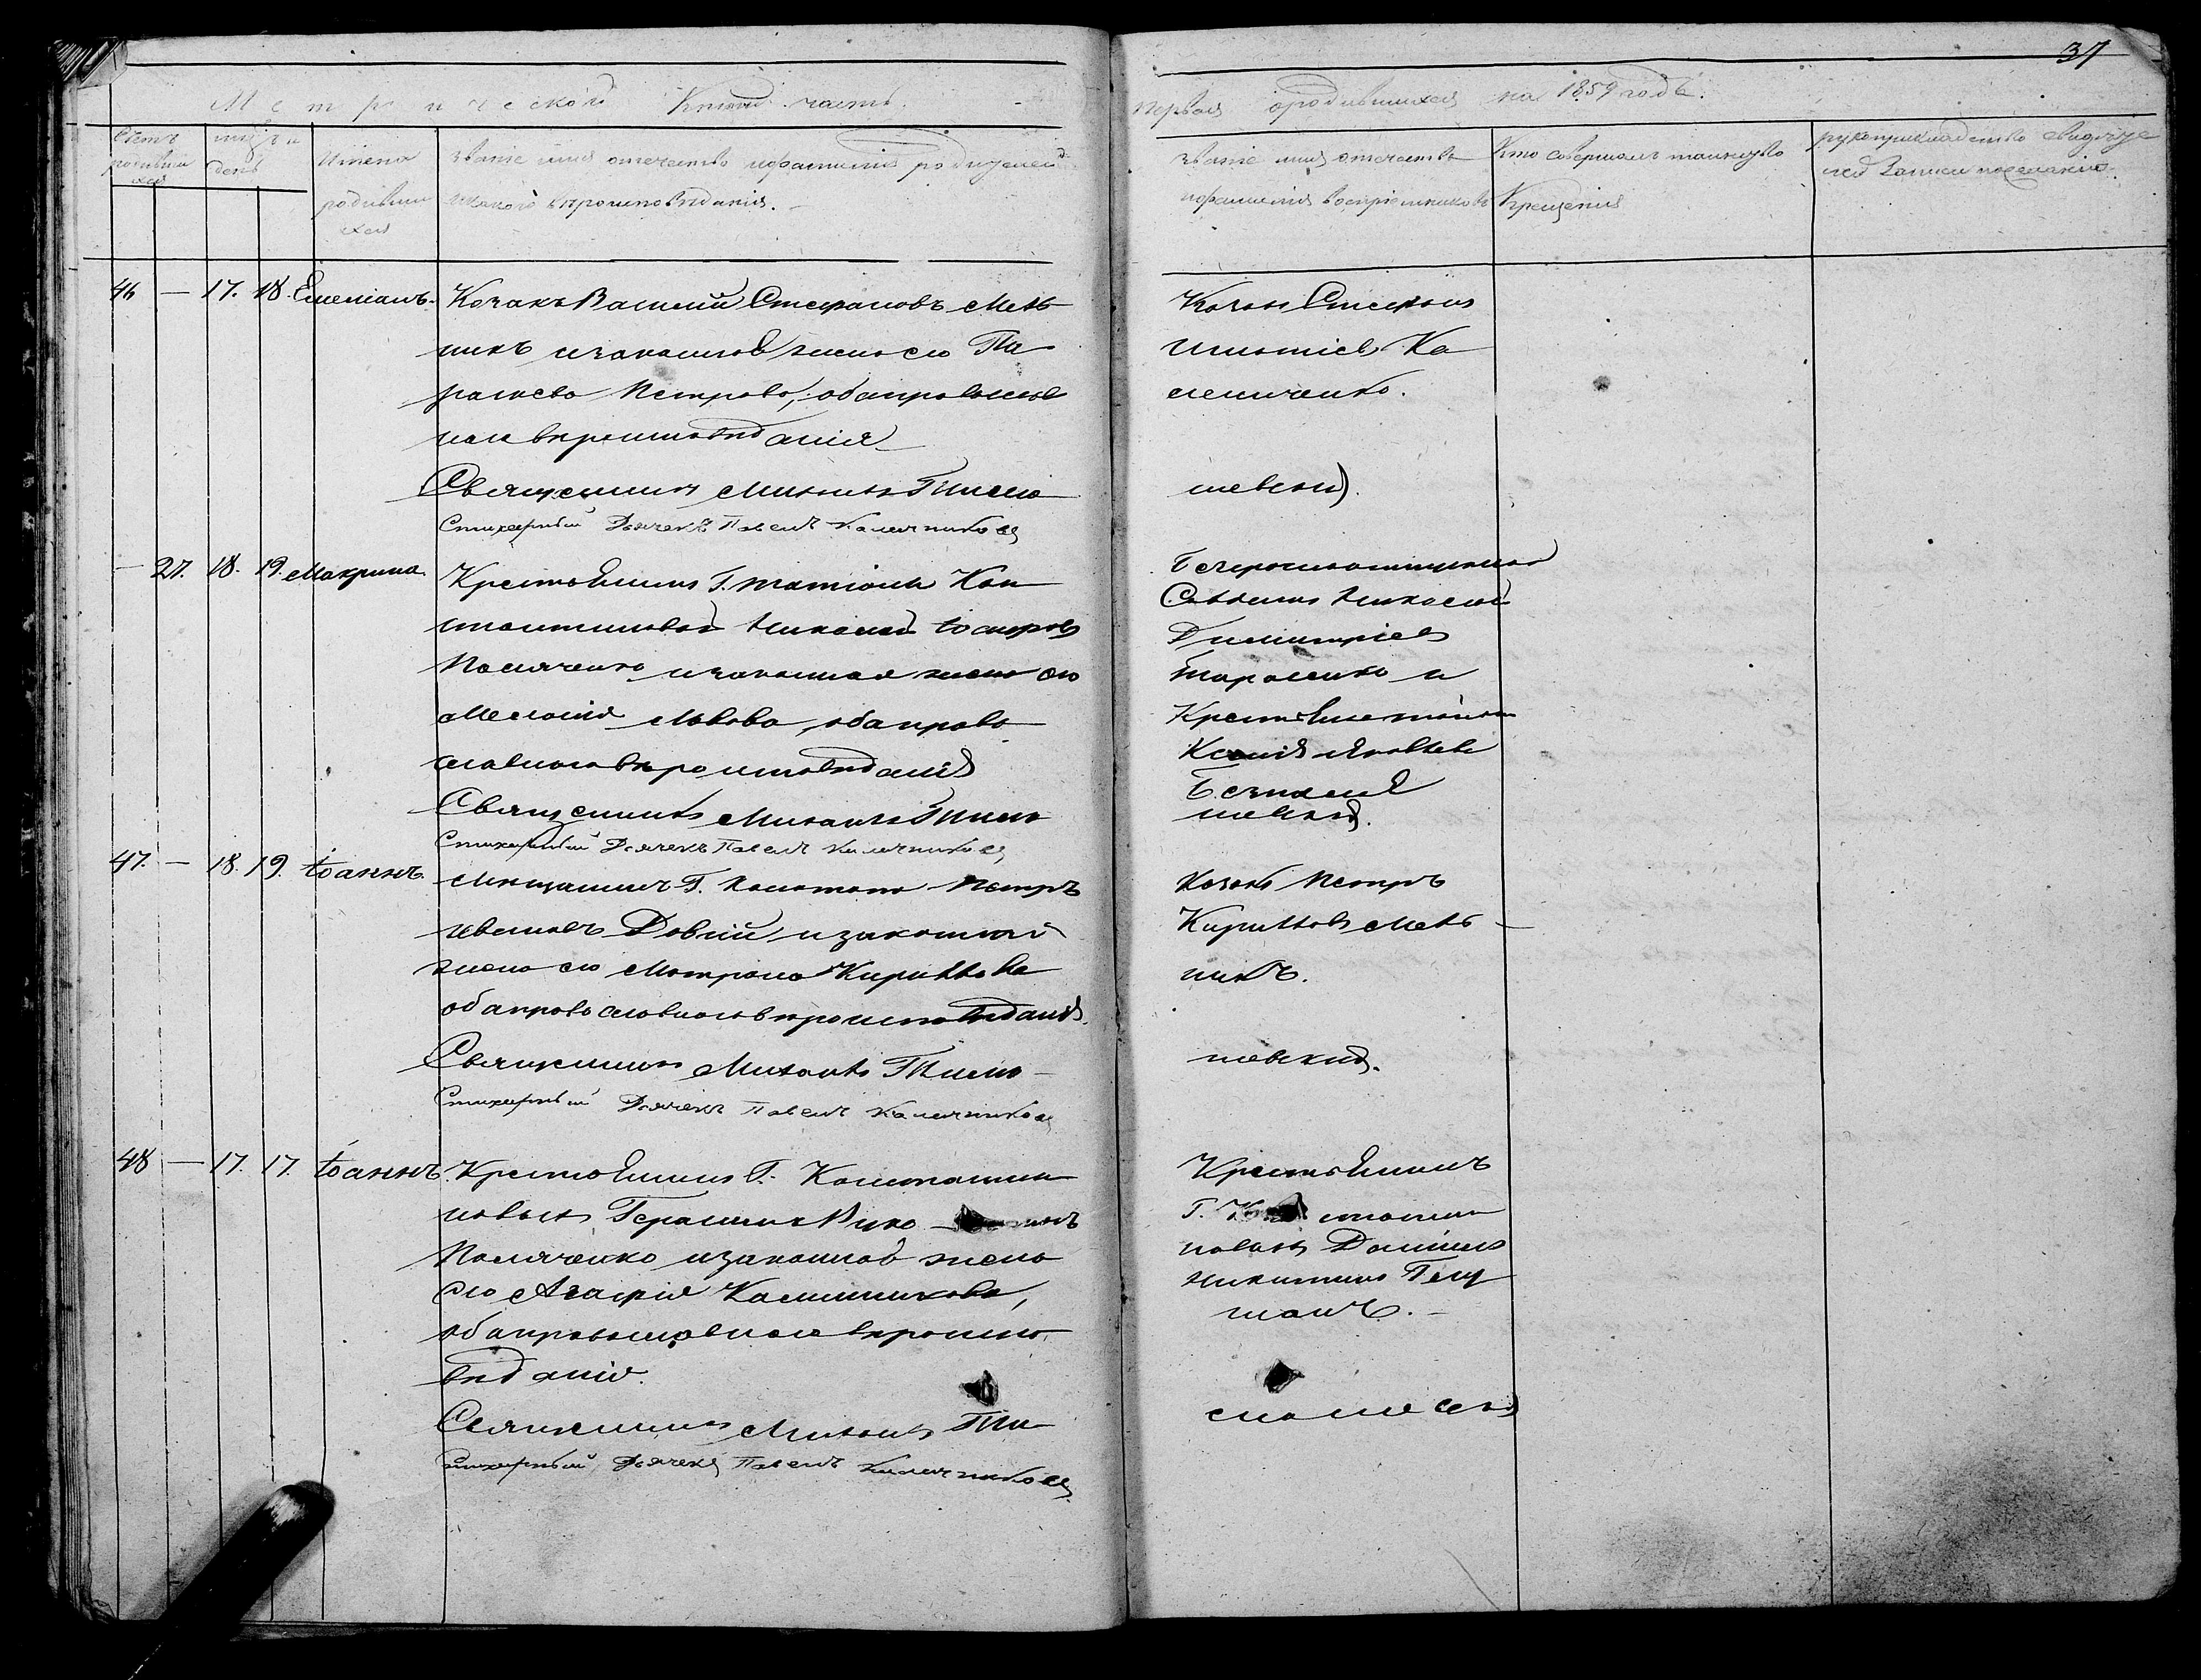 37
Метрической книги часть
первая о родившихся на 1859 годъ.
Счетъ родившихся
месяцъ и день
Имена родившихся
Званіе имя отечество и фамилія родителей
и какого вѣроисповѣданія.
Званіе имя отечество
и фамилія воспріемниковъ
Кто совершалъ таинство
Крещенія
рукоприкладство свидѣтелей записи по желанію.
46 — 17. 18. Емеліанъ.
Козакъ Василій Стефановъ Мель
никъ и законная жена его Па
раскева Петрова, оба православ
наго вѣроисповѣданія
Козакъ Стефанъ
Игнатіев Ка
ленниченко.
Священникъ Михаилъ Тимо
шевскій.
Стихарный Дьячекъ Павелъ Калачниковъ
— 27. 18. 19. Макрина
Крестьянинъ Г. Татіаны Кон
стантиновой Николай Іосифовъ
Поляченко и законная жена его
Меланія Львова, оба право
славнаго вѣроисповѣданія
Николай
Димитріевъ
Тарасенко и
Крестьянка
Ксенія Яковлева
Священникъ Михаилъ Тимо
шевскій.
Стихарный Дьячекъ Павелъ Калачниковъ
47. — 18. 19. Іоаннъ
Мещанинъ Г. Петръ
Ивановъ Довгій и законная
жена его Матрона Кириллова
оба православнаго вѣроисповѣданія.
Козакъ Петръ
Кирилловъ Мель
никъ.
Священникъ Михаилъ Тимо
шевскій.
Стихарный Дьячекъ Павелъ Калачниковъ
48 — 17. 17. Іоаннъ.
Крестьянинъ Г. Константи
новыхъ Герасимъ
Поляченко и законная жена
его Агафія Калинникова,
оба православнаго вѣроиспо
вѣданія.
Крестьянинъ
Г. Константи
новыхъ Даніилъ
Никитинъ Гец
манъ.
Священникъ Михаилъ Ти
мошевскій
Стихарный Дьячекъ Павелъ Калачниковъ